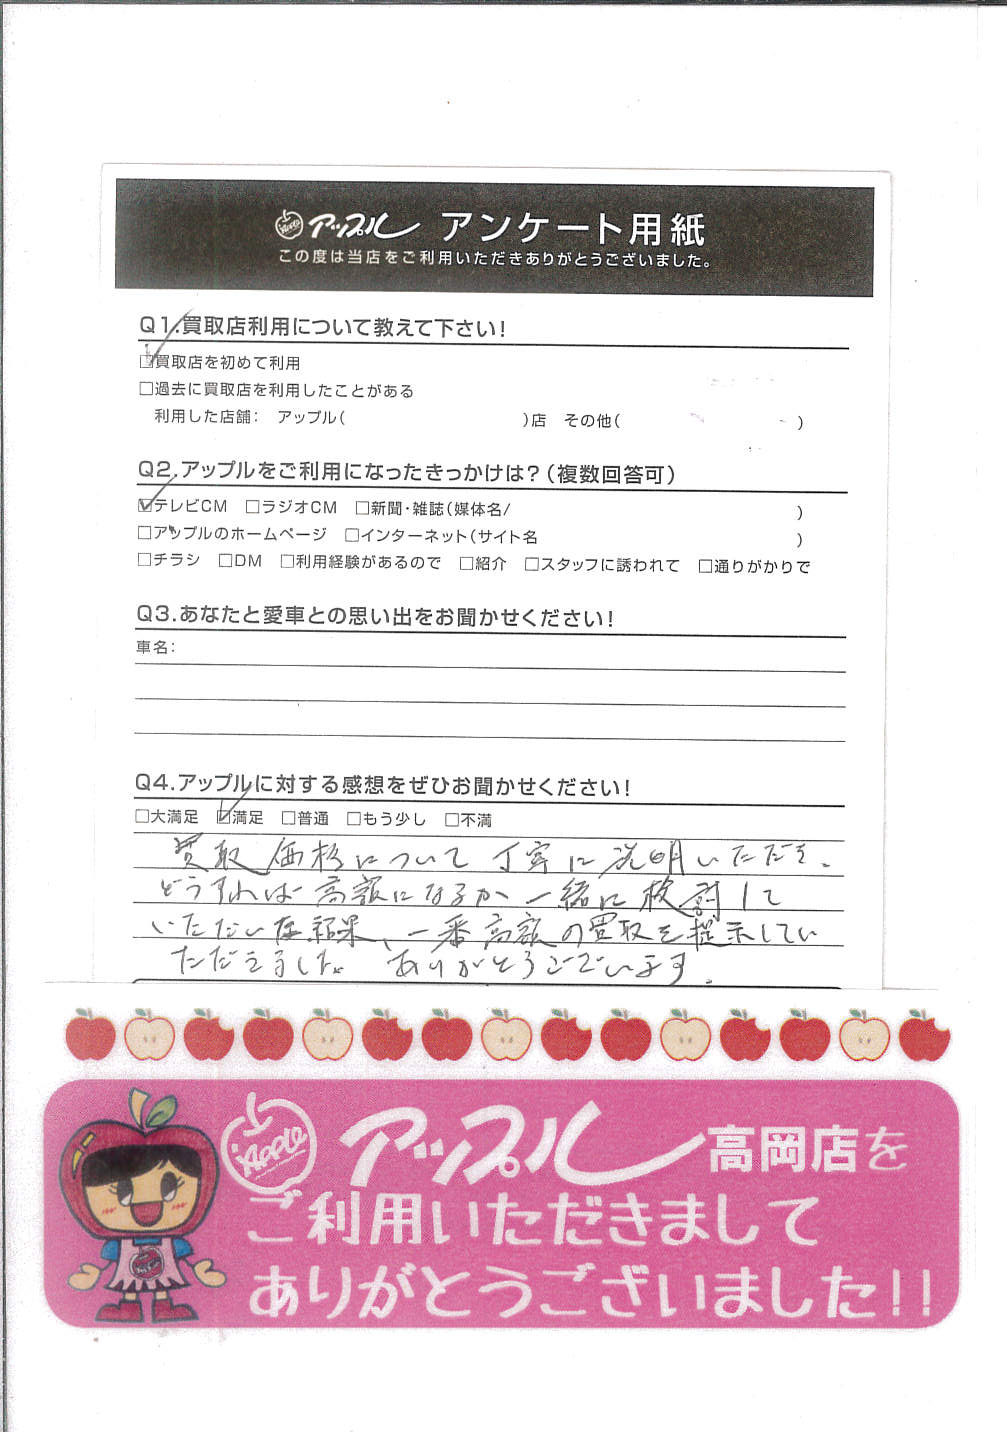 Apple アップル アンケート用紙
この度は当店をご利用いただきありがとうございました。
Q1.買取店利用について教えて下さい!
☑買取店を初めて利用
□過去に買取店を利用したことがある
利用した店舗: アップル( )店 その他( )
Q2.アップルをご利用になったきっかけは?(複数回答可)
☑テレビCM □ラジオCM □新聞・雑誌(媒体名/ )
□アップルのホームページ □インターネット(サイト名 )
□チラシ □DM □利用経験があるので □紹介 □スタッフに誘われて □通りがかりで
Q3.あなたと愛車との思い出をお聞かせください!
車名:
Q4.アップルに対する感想をぜひお聞かせください!
□大満足 ☑満足 □普通 □もう少し □不満
買取価格について丁寧に説明いただき、
どうすれば高額になるか一緒に検討して
いただいた結果、一番高額の買取を提示してい
ただきました。ありがとうございます。
Apple アップル 高岡店を
ご利用いただきまして
ありがとうございました!!